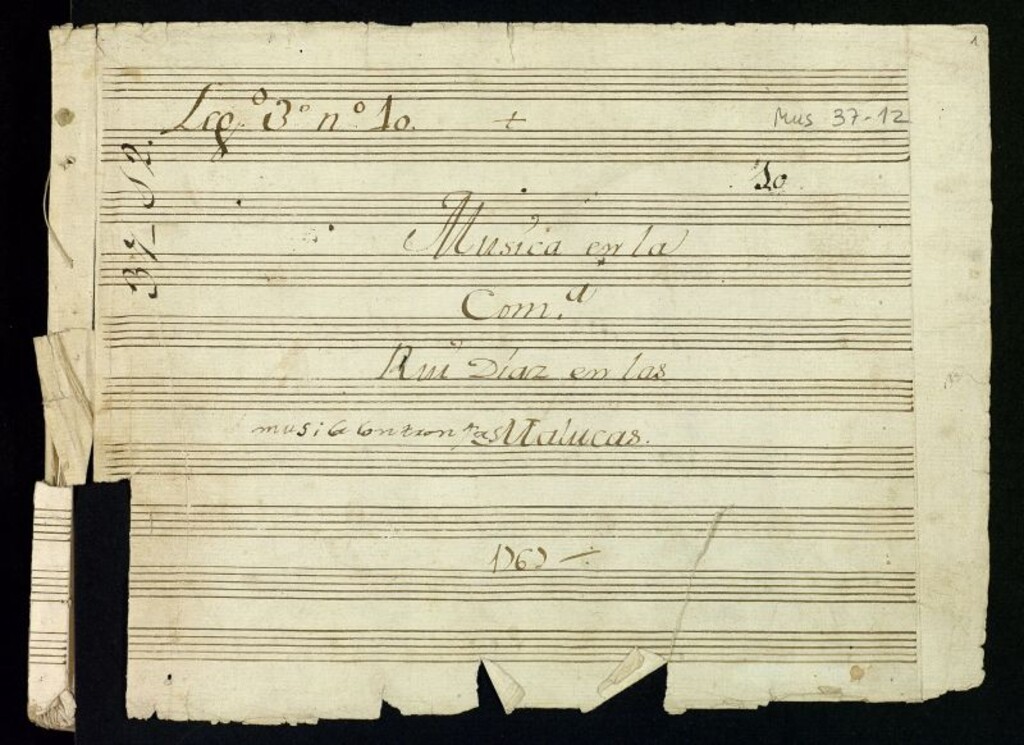 1
Leg.º 3º nº 10. +
Mus 37-12
37-12.
10
Musica en la
Com.ª
Rui Díaz en las
musica con trompas Malucas.
1767